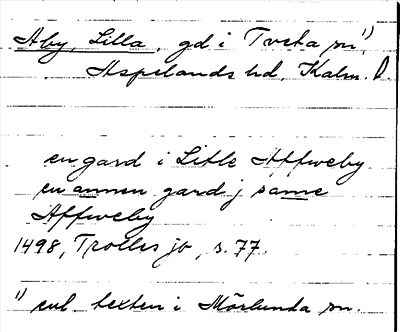 Åby, Lilla, gd i Tveta sn¹⁾
Aspelands hd, Kalm. l.
en gard i Litle Affweby
en annen gard j samme
Affweby
1498, Trolles jb, s. 77.
¹⁾ enl. texten i Mörlunda sn.